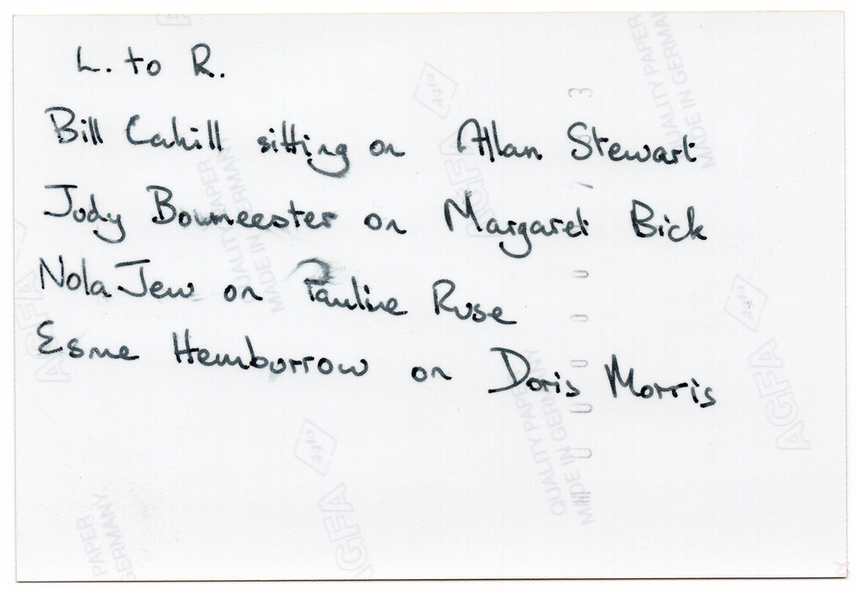 L. to R.
Bill Cahill sitting on Allan Stewart
Judy Boumeester on Margaret Bick
Nola Jew on Pauline Ruse
Esme Hemburrow on Doris Morris
AGFA
QUALITY PAPER
MADE IN GERMANY